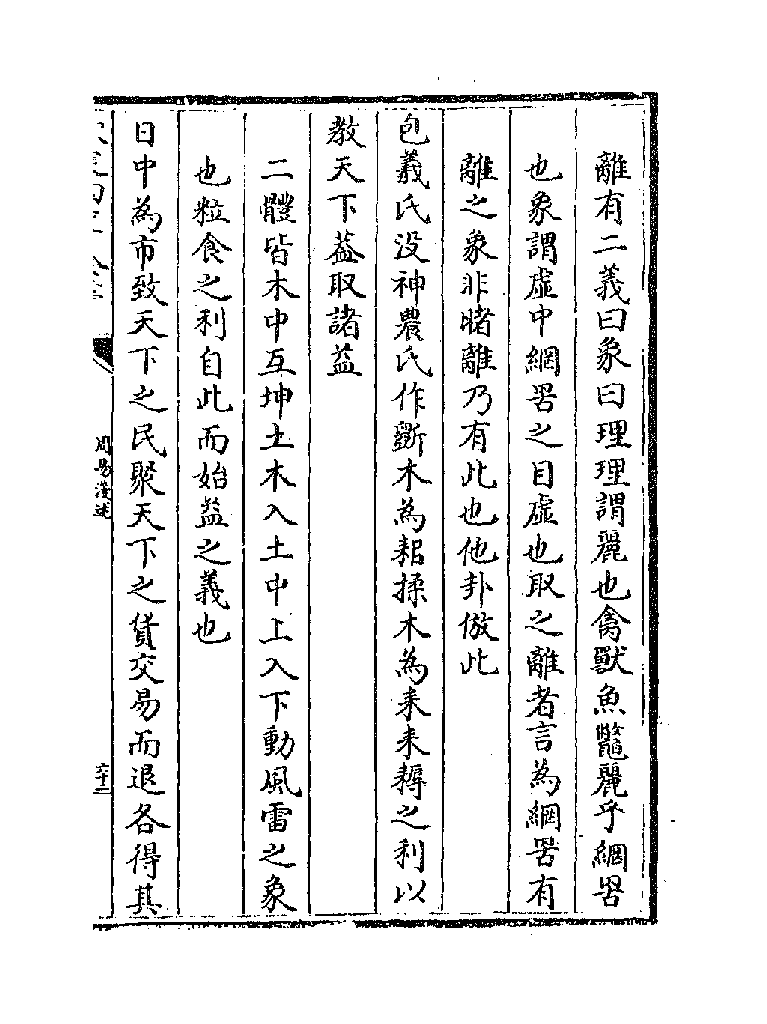 離有二義曰象曰理理謂麗也禽獸魚鼈麗乎網罟
也象謂虛中網罟之目虛也取之離者言為網罟有
離之象非睹離乃有此也他卦倣此
包羲氏沒神農氏作斵木為耜揉木為耒耒耨之利以
教天下葢取諸益
二體皆木中互坤土木入土中上入下動風雷之象
也粒食之利自此而始益之義也
日中為市致天下之民聚天下之貨交易而退各得其
周易淺述
六十二